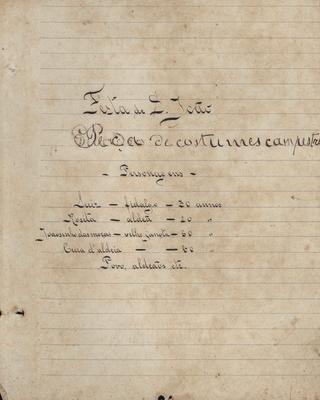 Festa de S. João
Peça de costumes campestres
- Personagens -
Luiz - fidalgo - 30 annos
Rosita - aldeã - 20 "
Joãosinho das moças - velho janota - 60 "
Cura d'aldeia - - 60 "
Povo, aldeãos etc.